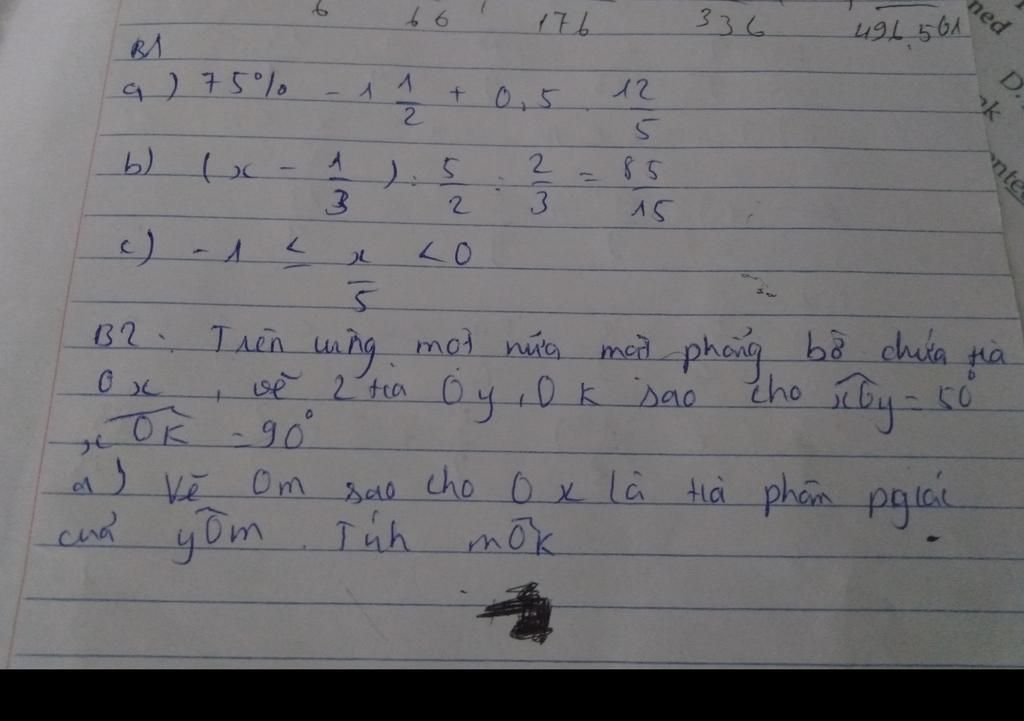 6 66 176 336 496.561
B1
a) 75% - 1 1/2 + 0,5 . 12/5
b) (x - 1/3) . 5/2 : 2/3 = 85/15
c) -1 ≤ x/5 < 0
B2. Trên cùng một nửa mặt phẳng bờ chứa tia
Ox, vẽ 2 tia Oy, Ok sao cho xÔy = 50°
, xÔk = 90°
a) Vẽ Om sao cho Ox là tia phân pgiác
của yÔm. Tính mÔk
ned
D.